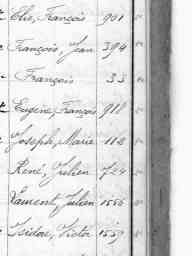 Elie, François 901
François, Jean 394
François 33
Eugène, François 918
Joseph, Marie 118
René, Julien 724
Laurent, Julien 1556
Isidore, Victor 1559